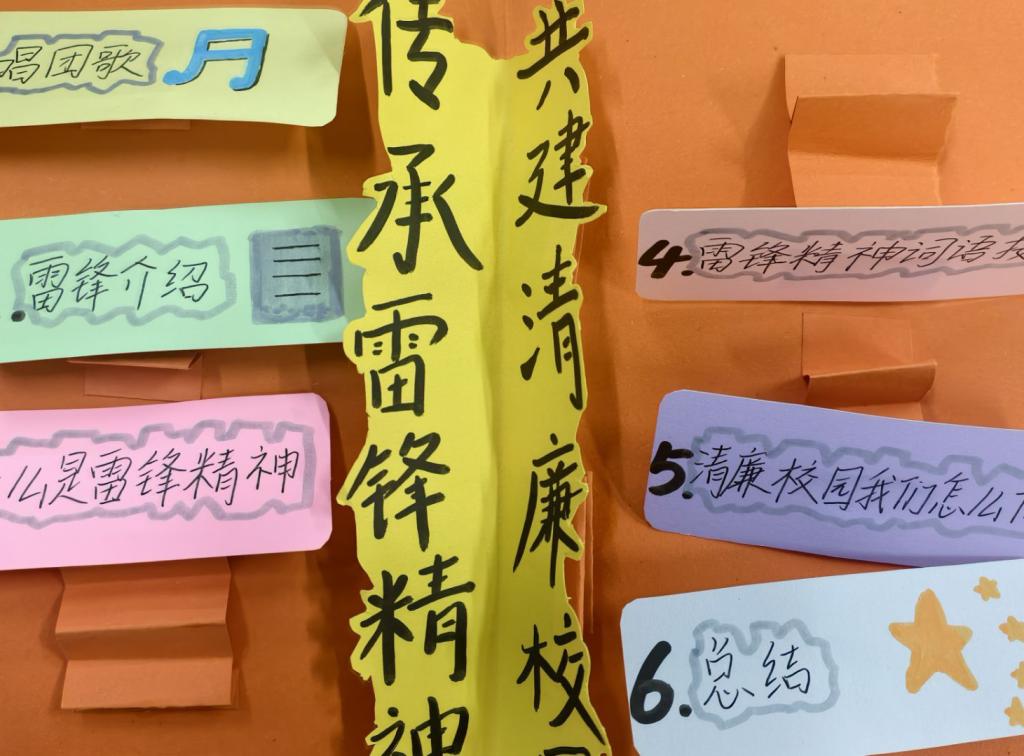 唱团歌
雷锋介绍
么是雷锋精神
传承雷锋精神
共建清廉校
4.雷锋精神词语
5.清廉校园我们怎么
6.总结